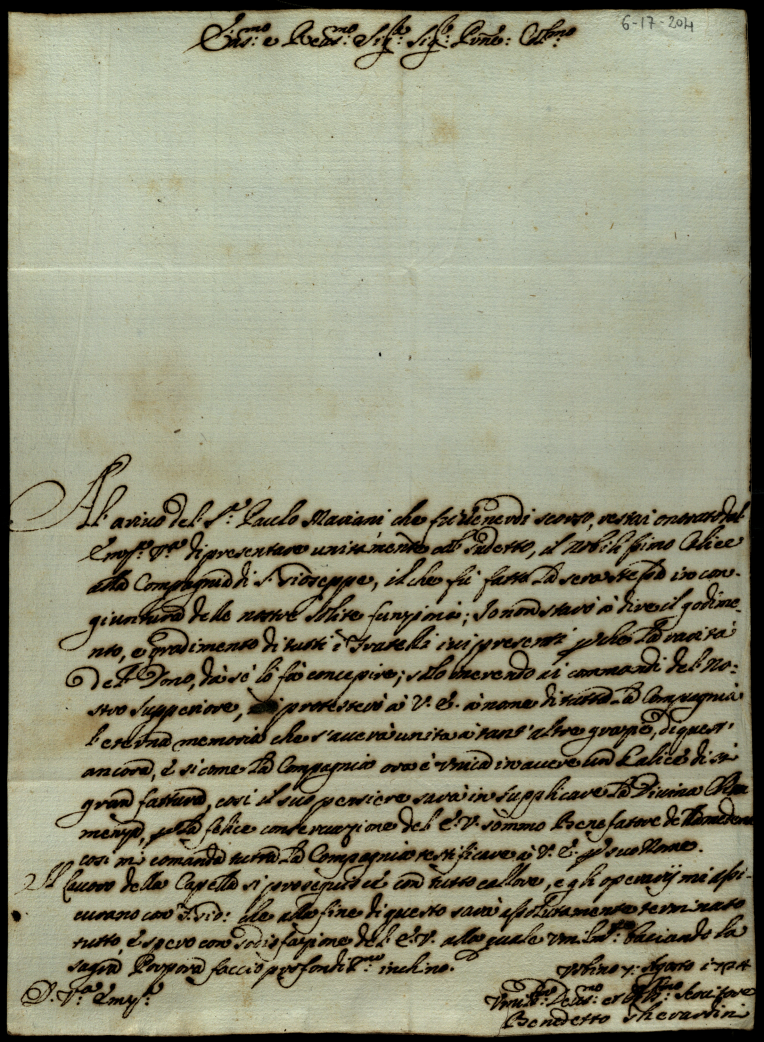 6-17-204
Em.mo e Reu.mo Sig.re Sig.re Prone: Col.mo
Al arivo del S.r Paulo Mariani che fù Venerdi scorso, restai onorato del
Em.za V.ra di presentare unitamente al sudetto, il nobilissimo Calice
alla Compagnia di S. Gioseppe, il che fu fatto la sera stessa in con-
giuntura delle nostre solite funzioni; Io non starò à dire il godime-
nto, e gradimento di tutti i Fratelli ivi presenti perche la rarità
del Dono, da sè lo fà concepire; solo inerendo ai commandi del No-
stro Supperiore, protesterò à V. E. à nome di tutta la Compagnia
l'eterna memoria che s'averà unita à tant'altre grazie, di quest'
ancora, e sicome la Compagnia ora è unica in avere un Calice di si
gran fattura, così il suo pensiere sarà in supplicare la Divina Cle
menza, per la felice conservazione del E. V. sommo Benefatore della medema
così mi comanda tutta la Compagnia testificare à V. E. per suo Nome.
Il lavoro della Capella si proseguisce con tutto callore, e gli operarij mi assi-
curano che alla fine di questo sarà assolutamente terminato
tutto, e spero con sodisfazione del E. V. alla quale baciando la
sagra Porpora faccio profondis.mo inchino.
Urbino Agosto
D. V.ra Em.za
Um.mo Deu.mo et Obl.mo Seruitore
Benedetto